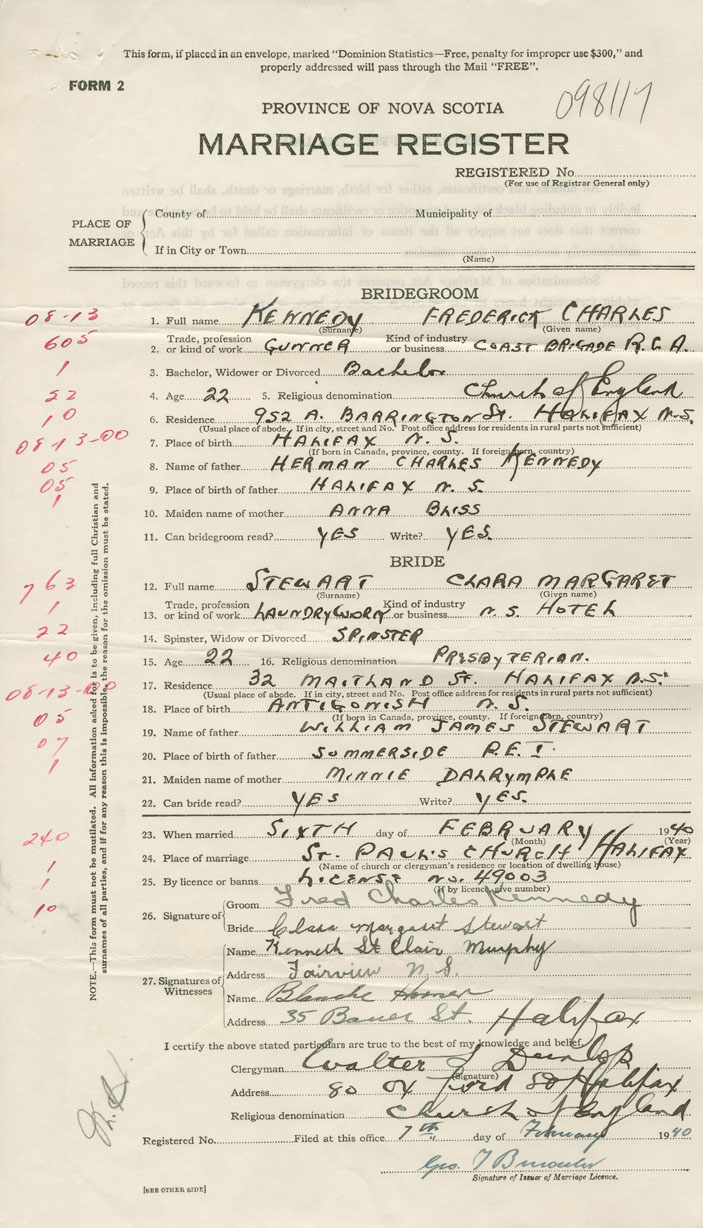 This form, if placed in an envelope, marked "Dominion Statistics—Free, penalty for improper use $300," and
properly addressed will pass through the Mail "FREE".
FORM 2
098117
PROVINCE OF NOVA SCOTIA
MARRIAGE REGISTER
REGISTERED No.
(For use of Registrar General only)
PLACE OF MARRIAGE
County of Municipality of
If in City or Town
(Name)
BRIDEGROOM
08-13 1. Full name KENNEDY FREDERICK CHARLES
(Surname) (Given name)
605 2. Trade, profession or kind of work GUNNER Kind of industry or business COAST BRIGADE R.C.A.
1 3. Bachelor, Widower or Divorced Bachelor
22 4. Age 22 5. Religious denomination Church of England
10 6. Residence 952 A. BARRINGTON St. HALIFAX N.S.
(Usual place of abode. If in city, street and No. Post office address for residents in rural parts not sufficient)
08-13-00 7. Place of birth HALIFAX N.S.
(If born in Canada, province, county. If foreign born, country)
05 8. Name of father HERMAN CHARLES KENNEDY
05 9. Place of birth of father HALIFAX N.S.
1 10. Maiden name of mother ANNA BLISS
11. Can bridegroom read? YES Write? YES.
BRIDE
763 12. Full name STEWART CLARA MARGARET
(Surname) (Given name)
1 13. Trade, profession or kind of work LAUNDRY WORK Kind of industry or business N.S. HOTEL
22 14. Spinster, Widow or Divorced SPINSTER
40 15. Age 22 16. Religious denomination PRESBYTERIAN.
08-13-00 17. Residence 32 MAITLAND St. HALIFAX N.S.
(Usual place of abode. If in city, street and No. Post office address for residents in rural parts not sufficient)
05 18. Place of birth ANTIGONISH N.S.
(If born in Canada, province, county. If foreign born, country)
07 19. Name of father WILLIAM JAMES STEWART
1 20. Place of birth of father SUMMERSIDE P.E.I.
21. Maiden name of mother MINNIE DALRYMPLE
22. Can bride read? YES Write? YES.
240 23. When married SIXTH day of FEBRUARY 1940
(Month) (Year)
1 24. Place of marriage St. PAUL'S CHURCH HALIFAX
(Name of church or clergyman's residence or location of dwelling house)
1 25. By licence or banns LICENSE NO. 49003
(If by licence, give number)
10 26. Signature of
Groom Fred Charles Kennedy
Bride Clara Margaret Stewart
27. Signatures of Witnesses
Name Kenneth St Clair Murphy
Address Fairview N.S.
Name Blanche
Address 35 Bauer St. Halifax
I certify the above stated particulars are true to the best of my knowledge and belief.
Clergyman Walter J Dunlop
(Signature)
Address 80 Oxford St Halifax
Religious denomination Church of England
Registered No. Filed at this office 7th day of February 1940
Geo. T
Signature of Issuer of Marriage Licence.
[SEE OTHER SIDE]
NOTE.—This form must not be mutilated. All information asked for is to be given, including full Christian and
surnames of all parties, and if for any reason this is impossible, the reason for the omission must be stated.